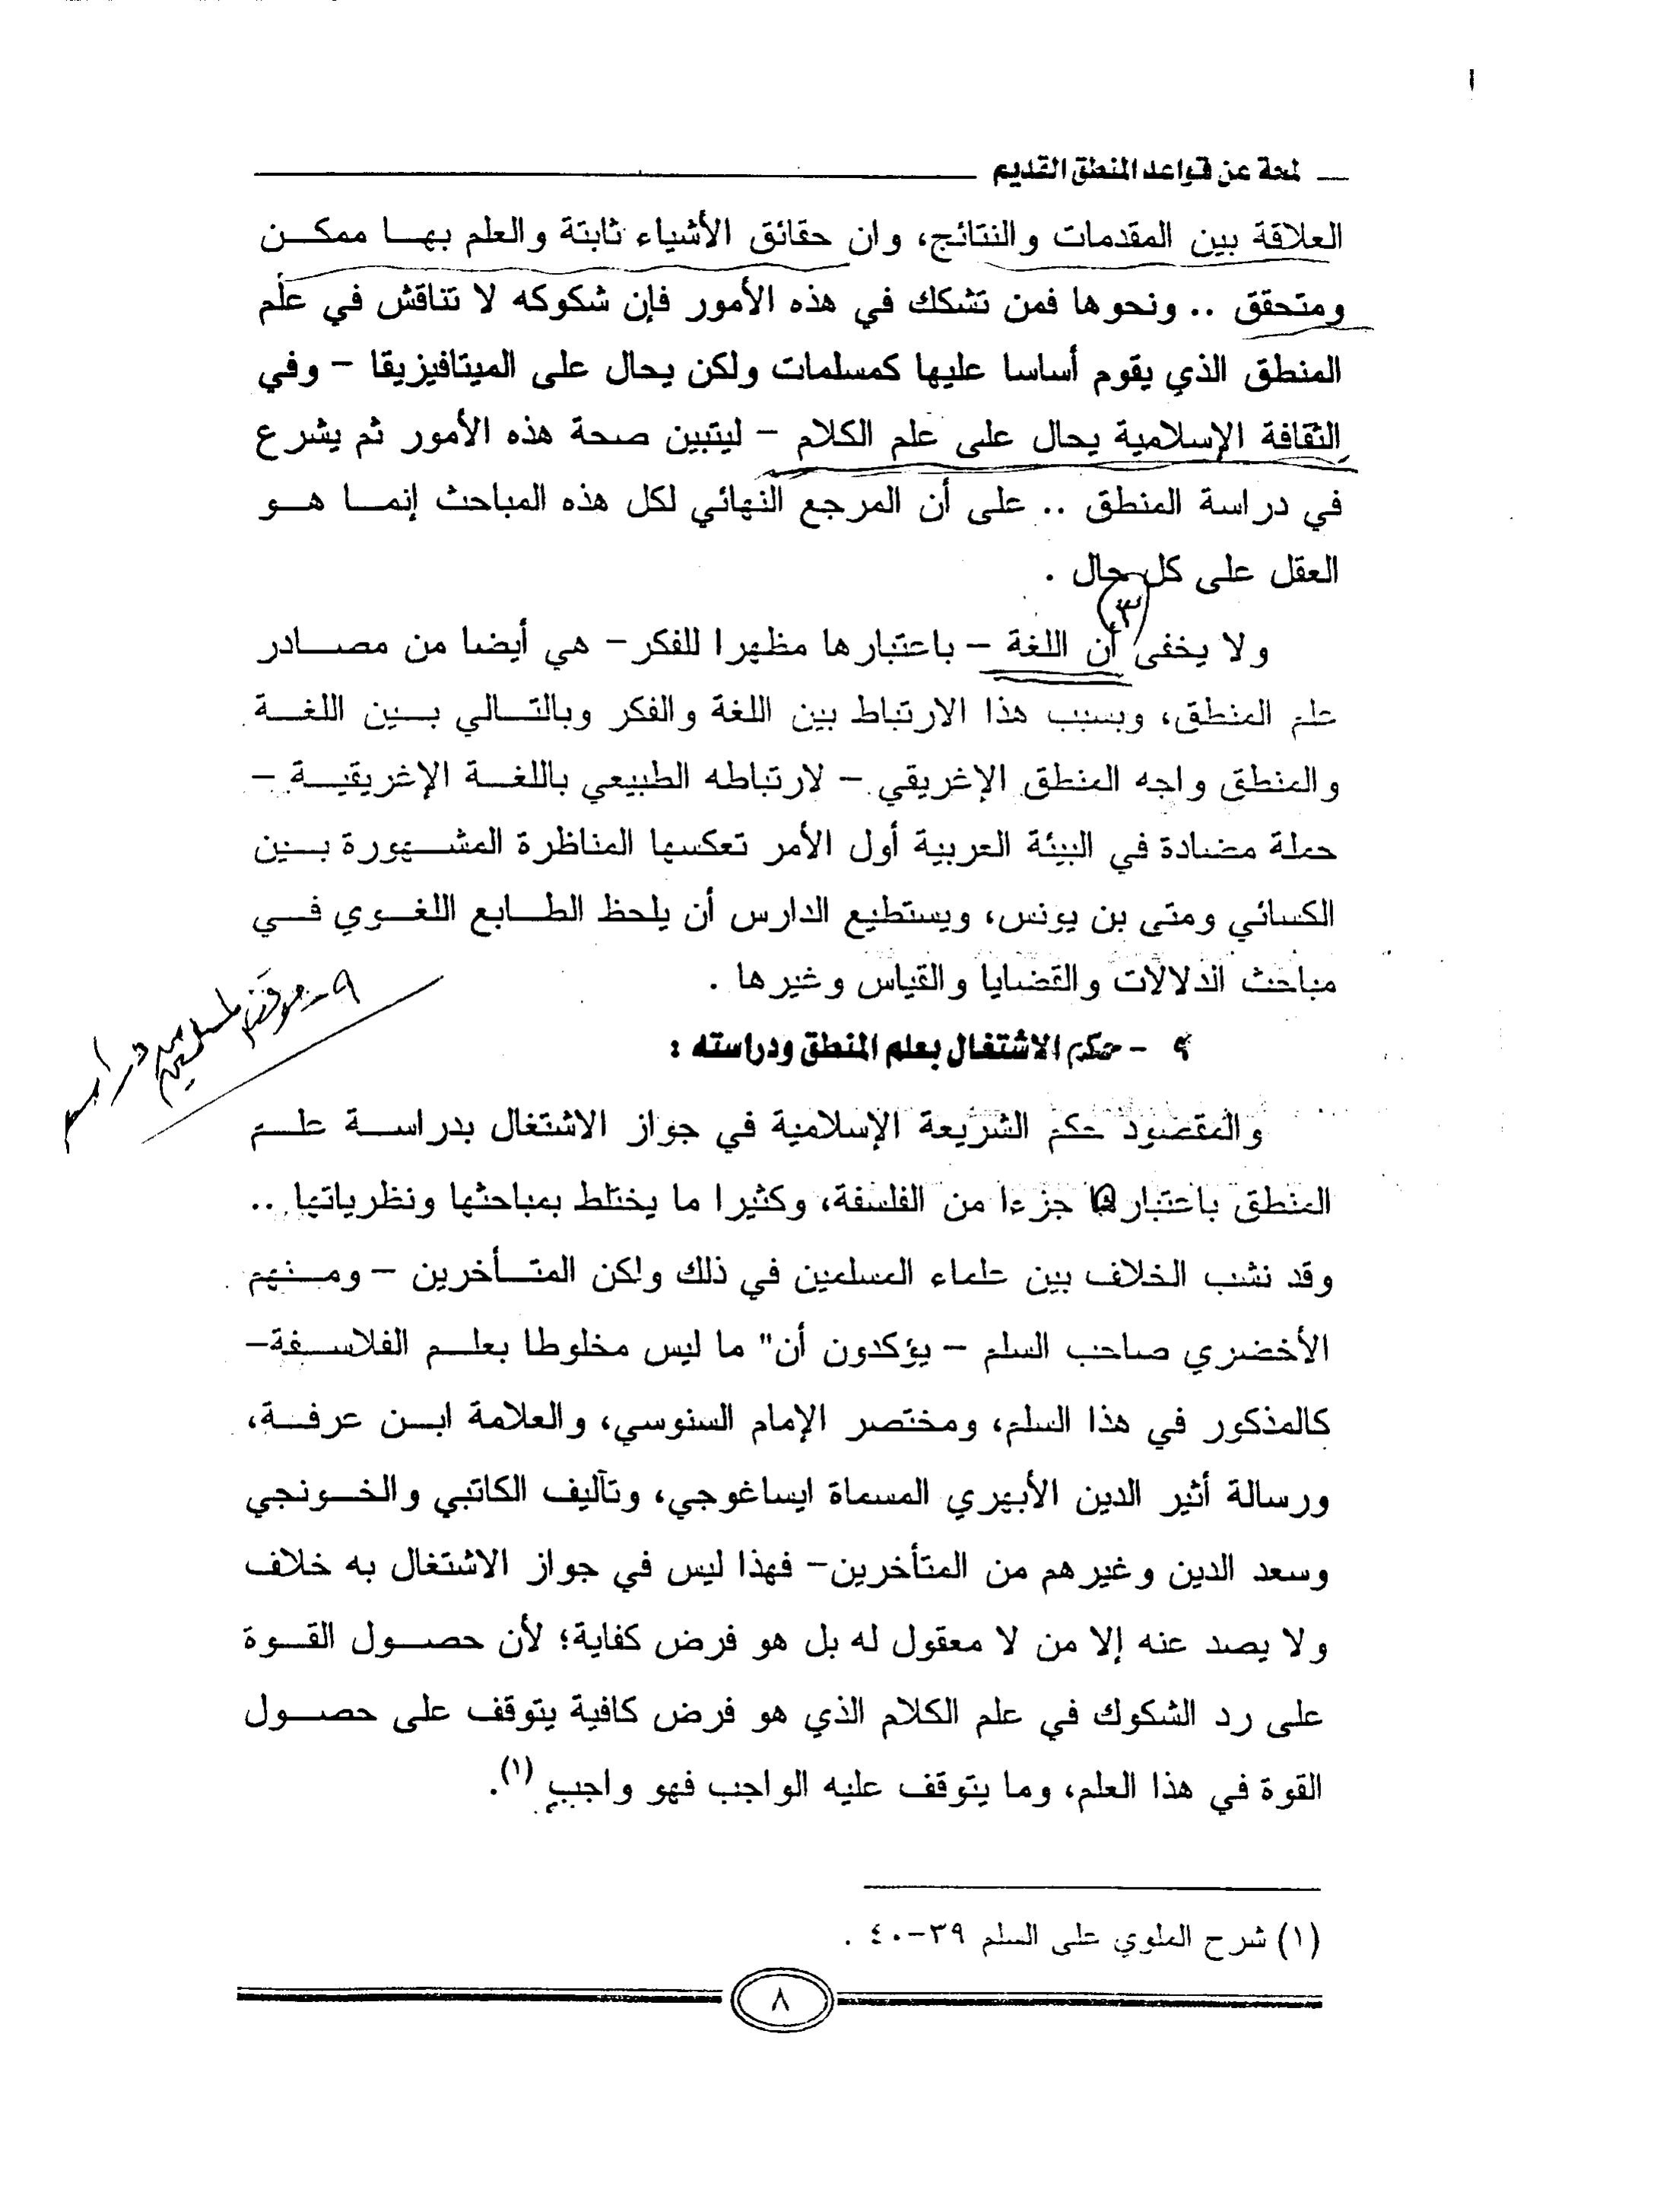 لمحة عن قواعد المنطق القديم
العلاقة بين المقدمات والنتائج، وان حقائق الأشياء ثابتة والعلم بها ممكن
ومتحقق .. ونحوها فمن تشكك في هذه الأمور فإن شكوكه لا تناقش في علم
المنطق الذي يقوم أساسا عليها كمسلمات ولكن يحال على الميتافيزيقا – وفي
الثقافة الإسلامية يحال على علم الكلام – ليتبين صحة هذه الأمور ثم يشرع
في دراسة المنطق .. على أن المرجع النهائي لكل هذه المباحث إنما هو
العقل على كل حال .
(٣)
ولا يخفى أن اللغة – باعتبارها مظهرا للفكر– هي أيضا من مصادر
علم المنطق، وبسبب هذا الارتباط بين اللغة والفكر وبالتالي بين اللغة
والمنطق واجه المنطق الإغريقي – لارتباطه الطبيعي باللغة الإغريقية –
حملة مضادة في البيئة العربية أول الأمر تعكسها المناظرة المشهورة بين
الكسائي ومتى بن يونس، ويستطيع الدارس أن يلحظ الطابع اللغوي في
مباحث الدلالات والقضايا والقياس وغيرها .
٩ – حكم الاشتغال بعلم المنطق ودراسته :
والمقصود حكم الشريعة الإسلامية في جواز الاشتغال بدراسة علم
المنطق باعتباره جزءا من الفلسفة، وكثيرا ما يختلط بمباحثها ونظرياتها ..
وقد نشب الخلاف بين علماء المسلمين في ذلك ولكن المتأخرين – ومنهم
الأخضري صاحب السلم – يؤكدون أن" ما ليس مخلوطا بعلم الفلاسفة–
كالمذكور في هذا السلم، ومختصر الإمام السنوسي، والعلامة ابن عرفة،
ورسالة أثير الدين الأبهري المسماة ايساغوجي، وتآليف الكاتبي والخونجي
وسعد الدين وغيرهم من المتأخرين– فهذا ليس في جواز الاشتغال به خلاف
ولا يصد عنه إلا من لا معقول له بل هو فرض كفاية؛ لأن حصول القوة
على رد الشكوك في علم الكلام الذي هو فرض كافية يتوقف على حصول
القوة في هذا العلم، وما يتوقف عليه الواجب فهو واجب (١).
(١) شرح الملوي على السلم ٣٩–٤٠ .
٨